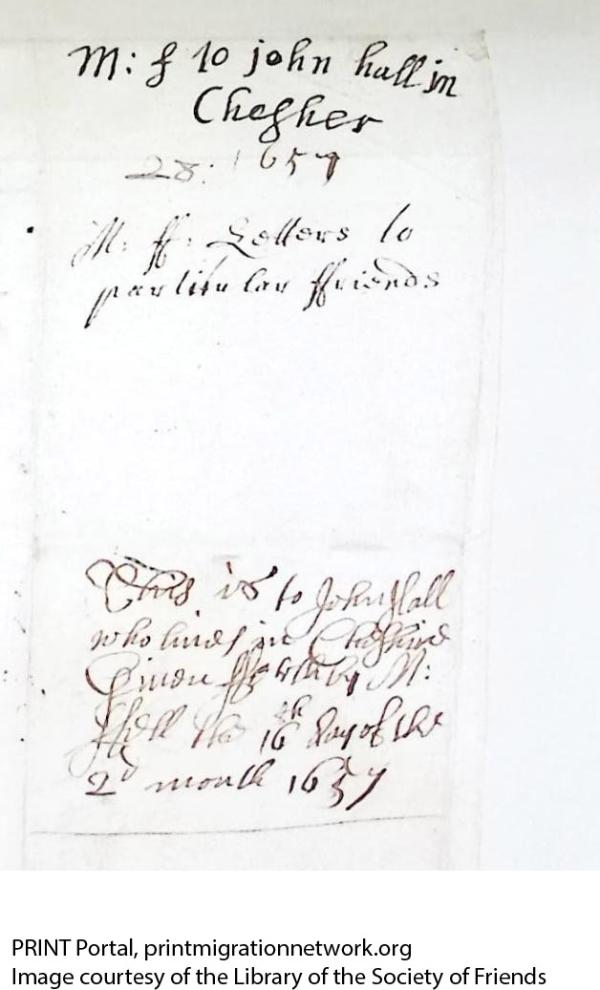 M: f to john hall in
Chesher
28: 1657
M. ff: Letters to
particular ffriends
This is to John Hall
who lives in Cheshire
Given by M:
ffell the 16th day of the
2d month 1657
PRINT Portal, printmigrationnetwork.org
Image courtesy of the Library of the Society of Friends